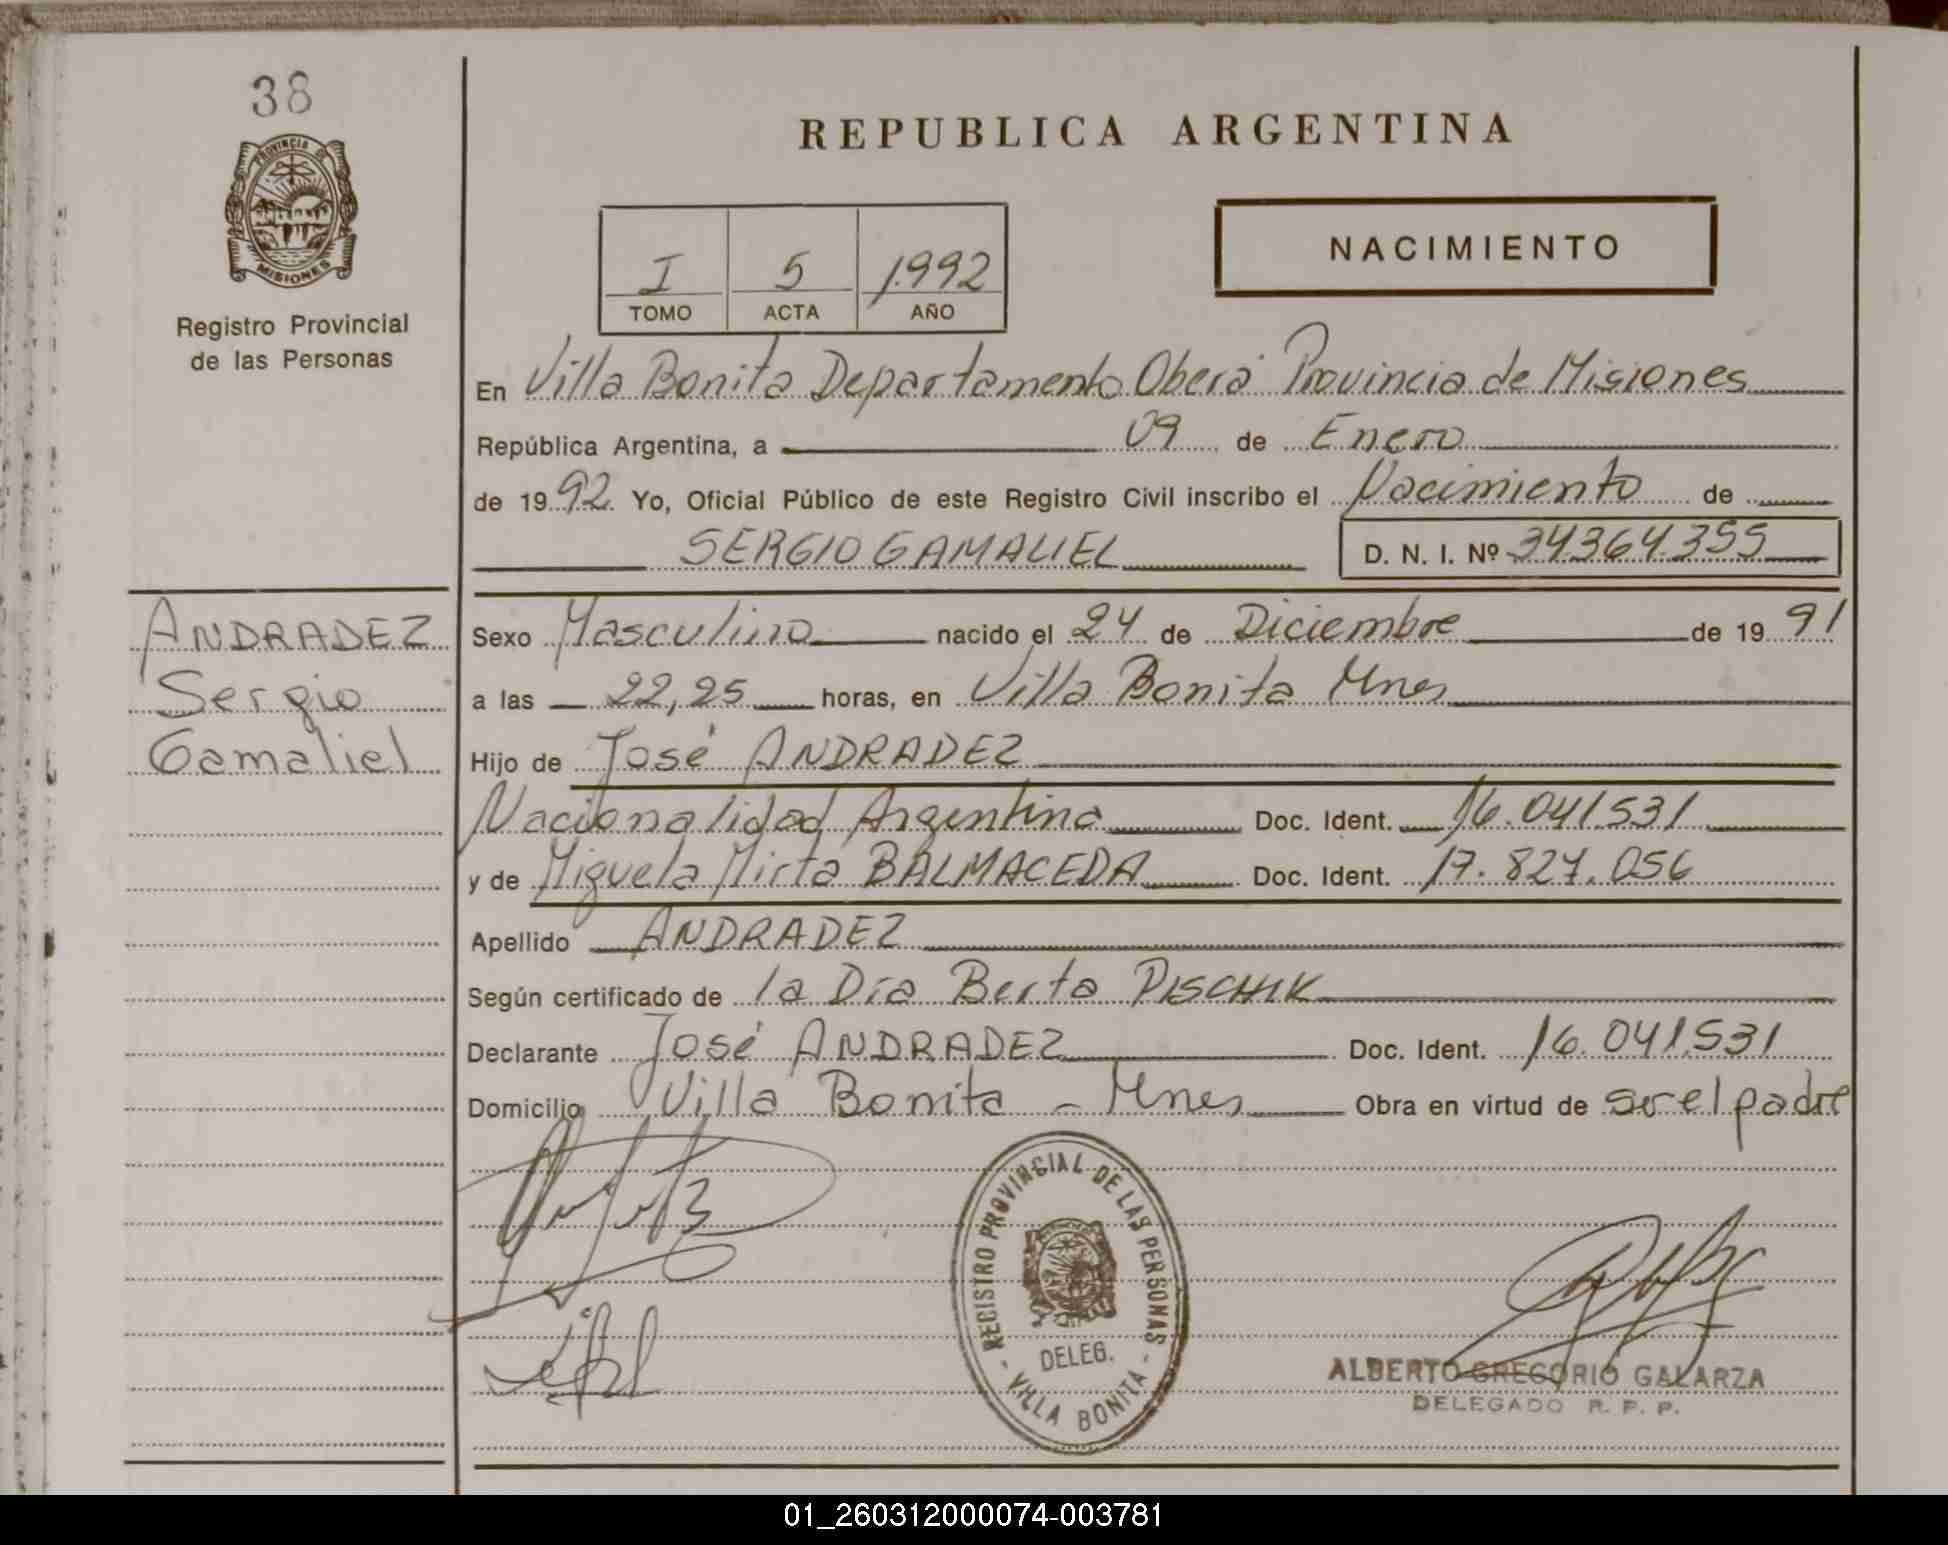 38
PROVINCIA DE
MISIONES
Registro Provincial
de las Personas
ANDRADEZ
Sergio
Gamaliel
REPUBLICA ARGENTINA
I 5 1.992
TOMO ACTA AÑO
NACIMIENTO
En Villa Bonita Departamento Oberá Provincia de Misiones
República Argentina, a 09 de Enero
de 1992 Yo, Oficial Público de este Registro Civil inscribo el Nacimiento de
SERGIO GAMALIEL D. N. I. Nº 34364.355
Sexo Masculino nacido el 24 de Diciembre de 1991
a las 22,25 horas, en Villa Bonita Mnes
Hijo de José ANDRADEZ
Nacionalidad Argentina Doc. Ident. 16.041.531
y de Miguela Mirta BALMACEDA Doc. Ident. 17.827.056
Apellido ANDRADEZ
Según certificado de la Dra Berta PISCHIK
Declarante José ANDRADEZ Doc. Ident. 16.041.531
Domicilio Villa Bonita - Mnes Obra en virtud de ser el padre
REGISTRO PROVINCIAL DE LAS PERSONAS
DELEG.
- VILLA BONITA -
ALBERTO GREGORIO GALARZA
DELEGADO R. P. P.
01_260312000074-003781